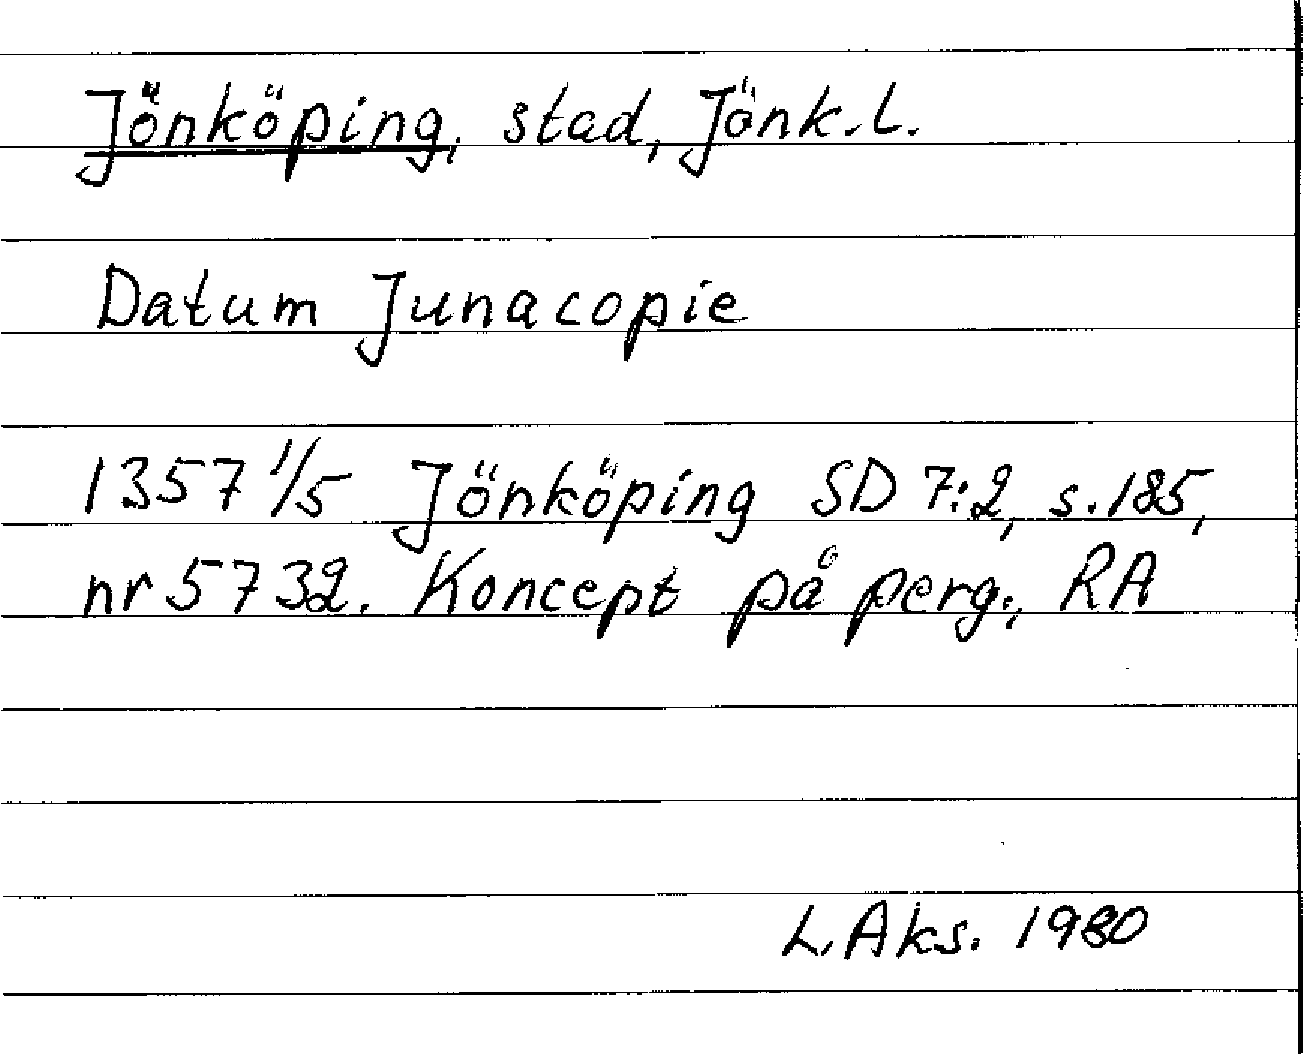 Jönköping, stad, Jönk. L.
Datum Junacopie
1357 1/5 Jönköping SD 7:2, s. 185,
nr 5732. Koncept på perg., RA
L. Aks. 1980